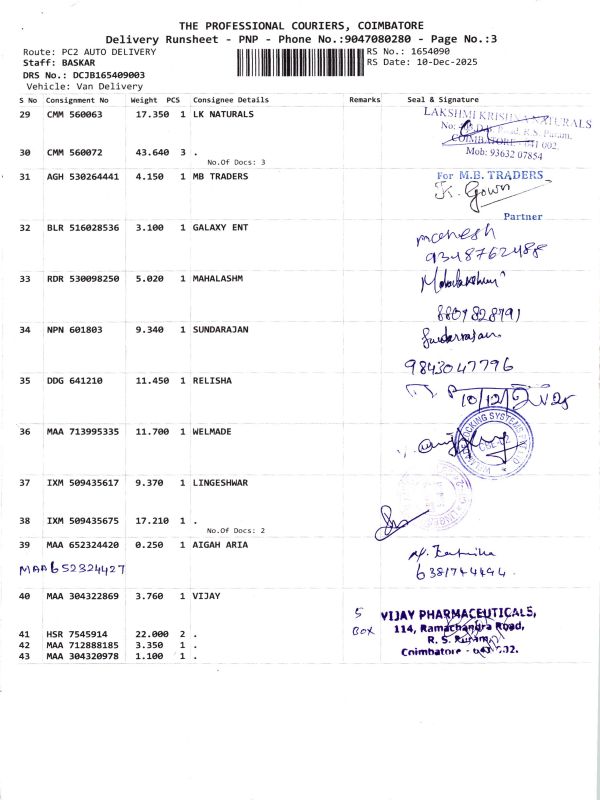 THE PROFESSIONAL COURIERS, COIMBATORE
Delivery Runsheet - PNP - Phone No.:9047080280 - Page No.:3
Route: PC2 AUTO DELIVERY RS No.: 1654090
Staff: BASKAR RS Date: 10-Dec-2025
DRS No.: DCJB165409003
Vehicle: Van Delivery
S No Consignment No Weight PCS Consignee Details Remarks Seal & Signature
29 CMM 560063 17.350 1 LK NATURALS
LAKSHMI KRISHNA NATURALS
No: Road, R.S. Puram,
COIMBATORE - 641 002
Mob: 93632 07854
30 CMM 560072 43.640 3 .
No.Of Docs: 3
31 AGH 530264441 4.150 1 MB TRADERS
For M.B. TRADERS
K. Gown
Partner
32 BLR 516028536 3.100 1 GALAXY ENT
mahesh
9348762488
33 RDR 530098250 5.020 1 MAHALASHM
8807828791
34 NPN 601803 9.340 1 SUNDARAJAN
Sundarrajan
9843047796
35 DDG 641210 11.450 1 RELISHA
10/12/
36 MAA 713995335 11.700 1 WELMADE
37 IXM 509435617 9.370 1 LINGESHWAR
38 IXM 509435675 17.210 1 .
No.Of Docs: 2
39 MAA 652324420 0.250 1 AIGAH ARIA
MAA 652324427
6381744494
40 MAA 304322869 3.760 1 VIJAY
5
BOX
VIJAY PHARMACEUTICALS,
114, Ramachandra Road,
R. S. Puram,
Coimbatore - 641 002.
41 HSR 7545914 22.000 2 .
42 MAA 712888185 3.350 1 .
43 MAA 304320978 1.100 1 .